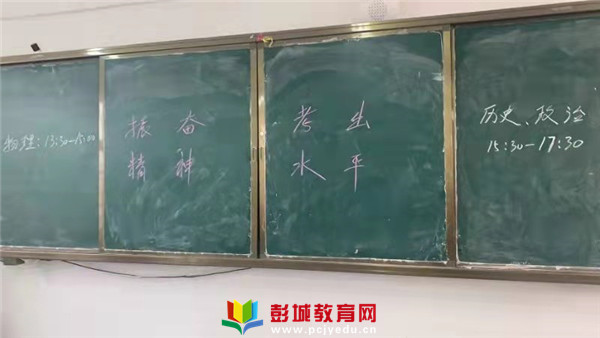 物理:13:30-15:00
振奋
精神
考出
水平
历史、政治
15:30-17:30
彭城教育网
www.pcjyedu.cn